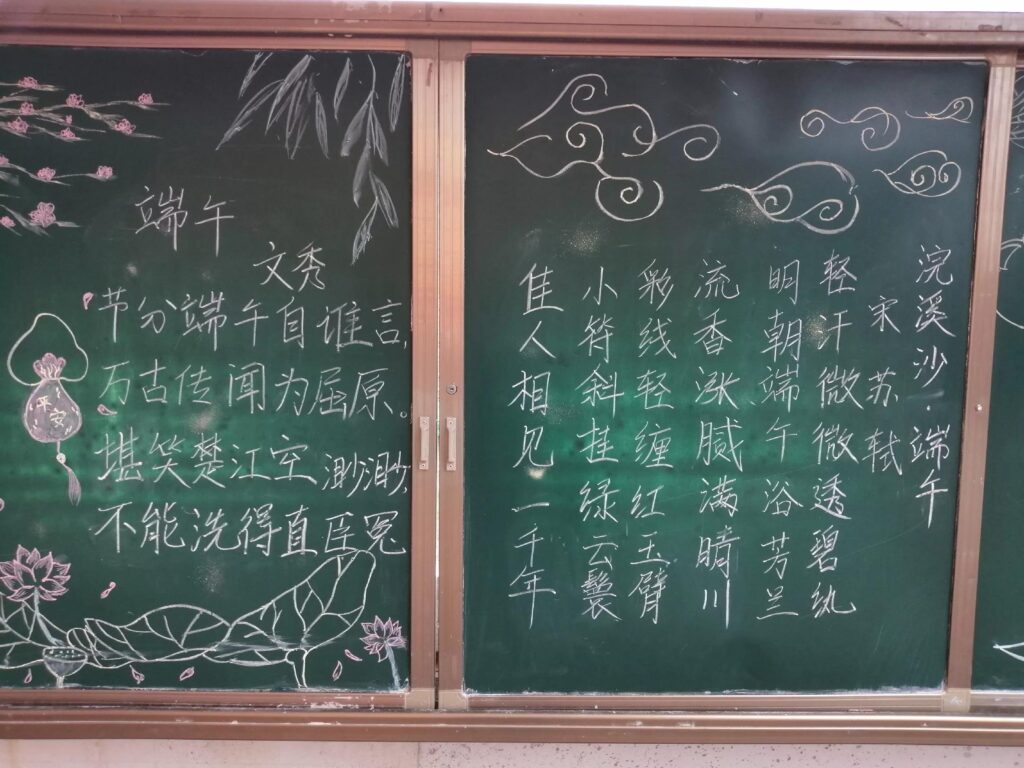 端午
文秀
节分端午自谁言,
万古传闻为屈原。
堪笑楚江空渺渺,
不能洗得直臣冤
平安
浣溪沙·端午
宋 苏轼
轻汗微微透碧纨
明朝端午浴芳兰
流香涨腻满晴川
彩线轻缠红玉臂
小符斜挂绿云鬟
佳人相见一千年